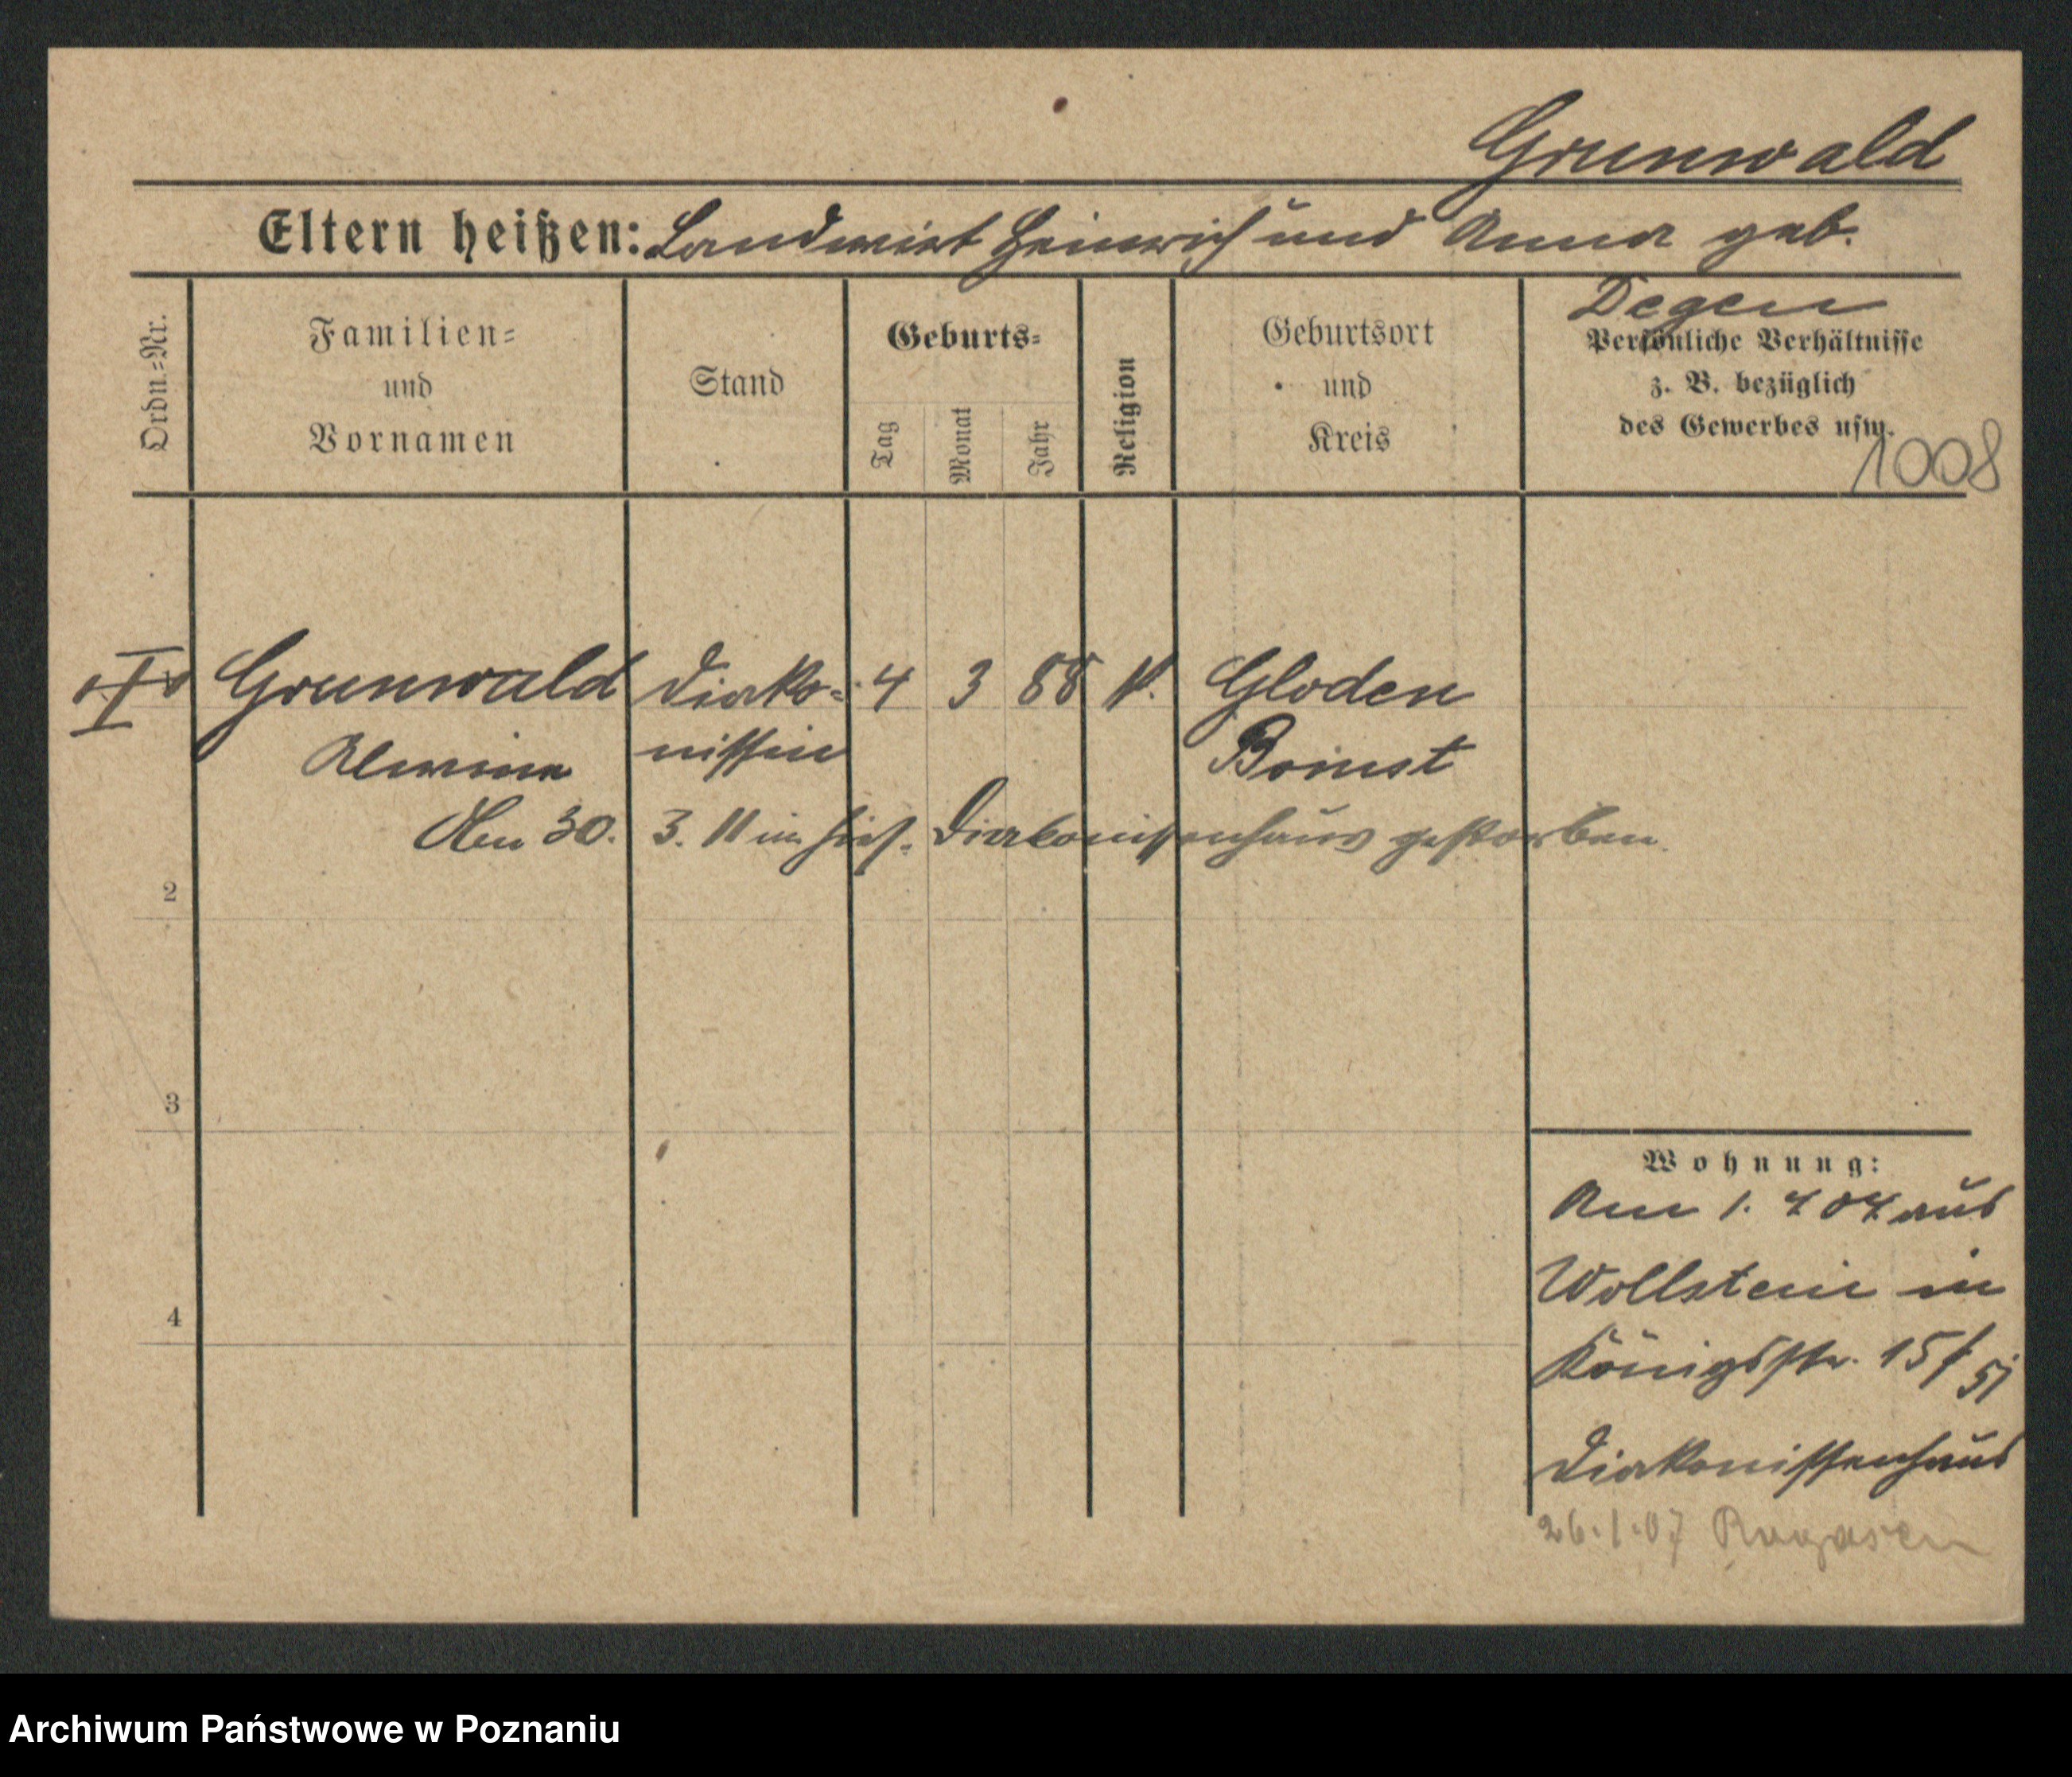 Grunwald
Eltern heißen: Landwirt Heinrich und Anna geb.
Degen
Ordn.=Nr.
Familien=
und
Vornamen
Stand
Geburts=
Tag
Monat
Jahr
Religion
Geburtsort
und
Kreis
Persönliche Verhältnisse
z. B. bezüglich
des Gewerbes usw.
1008
I Grunwald Diako= 4 3 88 Gloden
Alwine nissin Bomst
Am 30. 3. 11 im hies. Diakonissenhaus gestorben.
2
3
4
Wohnung:
Am 1. 4 07 aus
Wollstein in
Königsstr. 15/
Diakonissenhaus
26.1.07 Rogasen
Archiwum Państwowe w Poznaniu